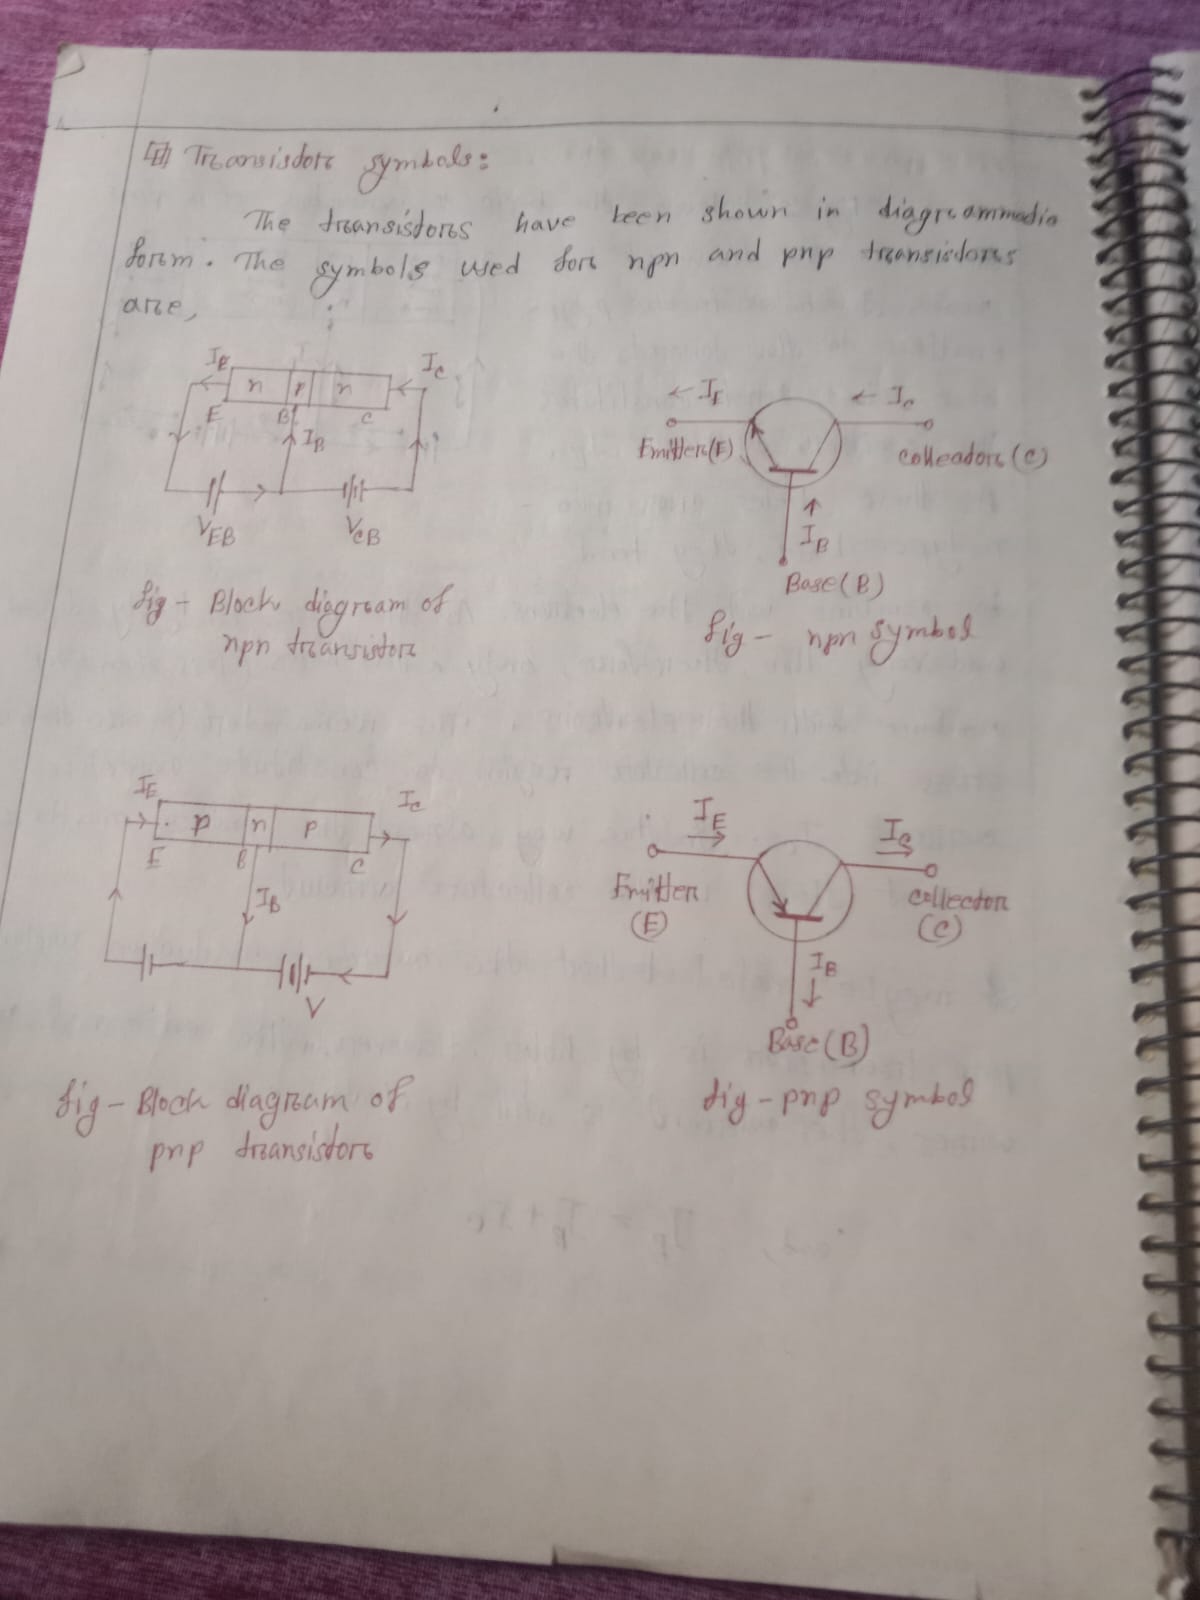 Transistor symbols:
The transistors have been shown in diagrammadic
form. The symbols used for npn and pnp transistors
are,
IE
n p n
IC
E B C
IB
VEB VCB
fig - Block diagram of
npn transistor
← IE ← IC
Emitter(E)
Colleador (C)
↑
IB
Base(B)
fig - npn symbol
IE
p n p
IC
E B C
IB
V
fig - Block diagram of
pnp transistor
IE
→
IC
→
Emitter
(E)
collector
(C)
IB
↓
Base(B)
fig - pnp symbol